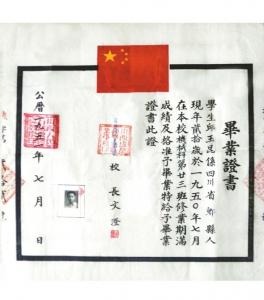 畢業證書
學生邱玉昆係四川省縣人
現年貳拾歲於一九五〇年七月
在本校機械科第廿三班修業期滿
成績及格准予畢業特給予畢業
證書此證
校長文澄
公曆一九五年七月 日